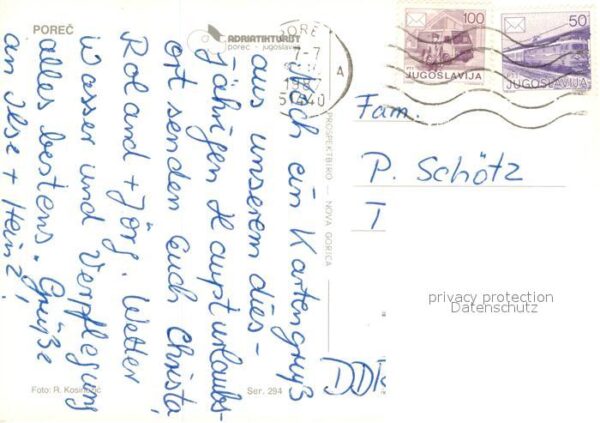 POREČ
ADRIATIKTURIST
poreč - jugoslavija
Noch ein Kartengruß
aus unserem dies-
jährigen Haupturlaubs-
ort senden Euch Christa,
Roland + Jörg. Wetter
Wasser und Verpflegung
alles bestens. Grüße
an Ilse + Heinz!
Foto: R. Kosinožić
Ser. 294
PROSPEKTBIRO — NOVA GORICA
7-7
51440
A
100
PTT
JUGOSLAVIJA
50
PTT
JUGOSLAVIJA
Fam.
P. Schötz
T
DDR
privacy protection
Datenschutz